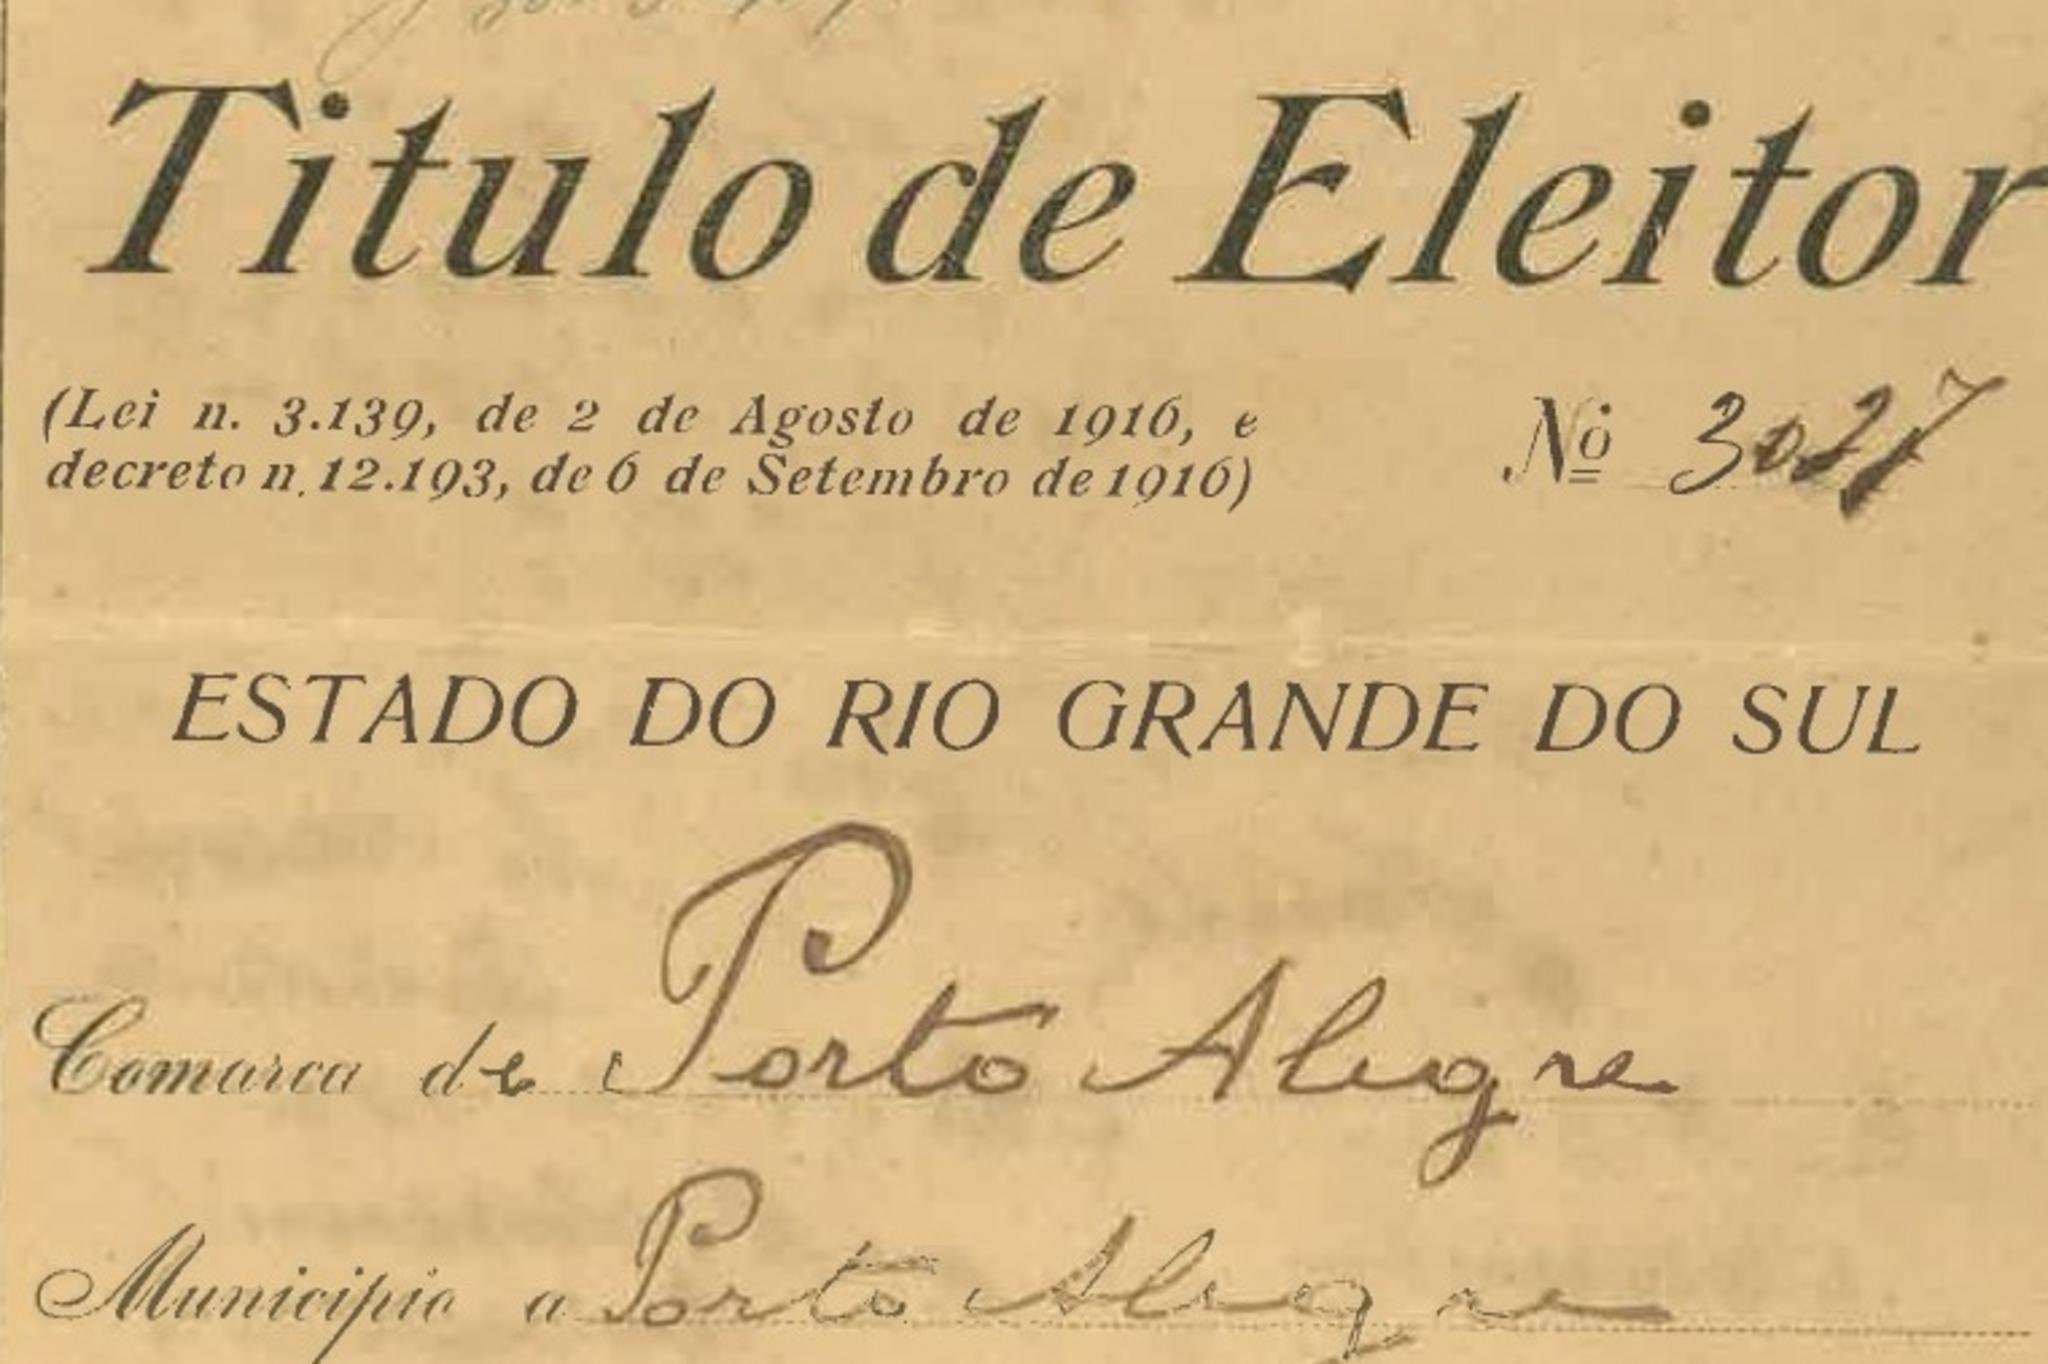 Titulo de Eleitor
(Lei n. 3.139, de 2 de Agosto de 1916, e
decreto n. 12.193, de 6 de Setembro de 1916)
Nº 3027
ESTADO DO RIO GRANDE DO SUL
Comarca de Porto Alegre
Municipio a Porto Alegre